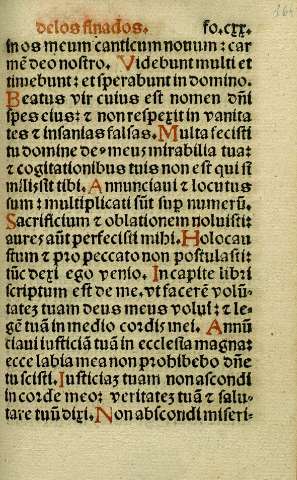 delos finados. fo.cxx.
in os meum canticum nouum: car
mē deo nostro. Videbunt multi et
timebunt: et sperabunt in domino.
Beatus vir cuius est nomen dn̄i
spes eius: ⁊ non respexit in vanita
tes ⁊ insanias falsas. Multa fecisti
tu domine de⁹ meus mirabilia tua:
⁊ cogitationibus tuis non est qui si
milis sit tibi. Annunciaui ⁊ locutus
sum: multiplicati sūt sup numerū.
Sacrificium ⁊ oblationem noluisti:
aures aut perfecisti mihi. Holocau
stum ⁊ pro peccato non postulasti:
tūc dexi ego venio. In capite libri
scriptum est de me, vt facerē volū-
tatez tuam deus meus volui: ⁊ le-
gē tuā in medio cordis mei. Annū
ciaui iusticiā tuā in ecclesia magna:
ecce labia mea non prohibebo dn̄e
tu scisti. Iusticiaz tuam non ascondi
in corde meo: veritatez tuā ⁊ salu-
tare tuū dixi. Non abscondi miseri-